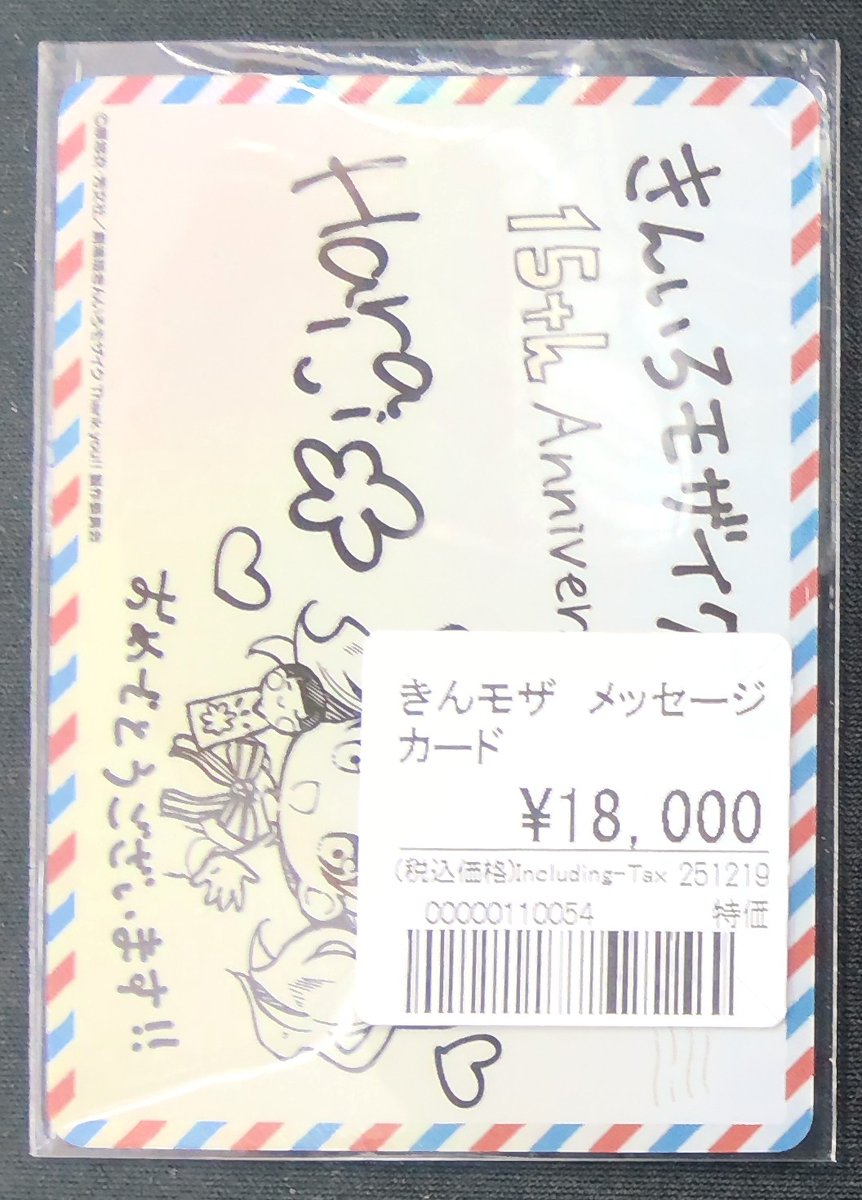 きんいろモザイク
15th Anniver
Hara
おめでとうございます!!
©原悠衣・芳文社/劇場版きんいろモザイクThank you!!製作委員会
きんモザ メッセージ
カード
¥18,000
(税込価格)Including-Tax 251219
00000110054 特価